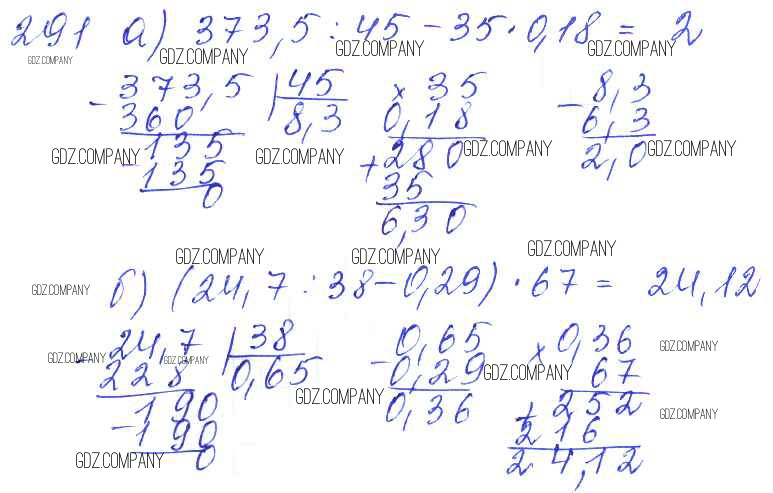 291 а) 373,5 : 45 - 35 · 0,18 = 2
GDZ.COMPANY GDZ.COMPANY GDZ.COMPANY GDZ.COMPANY
- 373,5 | 45 × 35 - 8,3
360 8,3 0,18 6,3
- 135 + 280 2,0
GDZ.COMPANY GDZ.COMPANY GDZ.COMPANY GDZ.COMPANY
135 35
0 6,30
GDZ.COMPANY GDZ.COMPANY GDZ.COMPANY
GDZ.COMPANY б) (24,7 : 38 - 0,29) · 67 = 24,12
- 24,7 | 38 - 0,65 × 0,36 GDZ.COMPANY
GDZ.COMPANY GDZ.COMPANY
228 0,65 0,29 67
GDZ.COMPANY GDZ.COMPANY
190 0,36 + 252 GDZ.COMPANY
- 190 216
GDZ.COMPANY 0 24,12